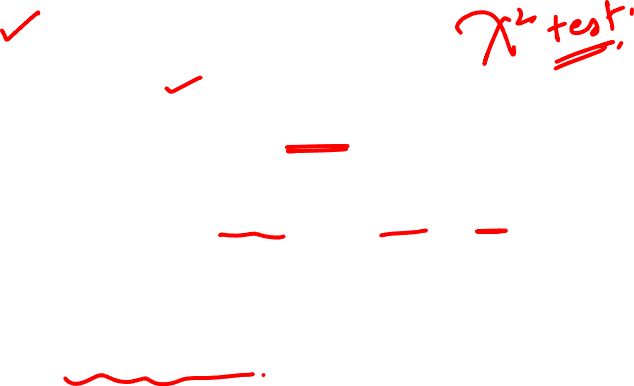 χ² test.